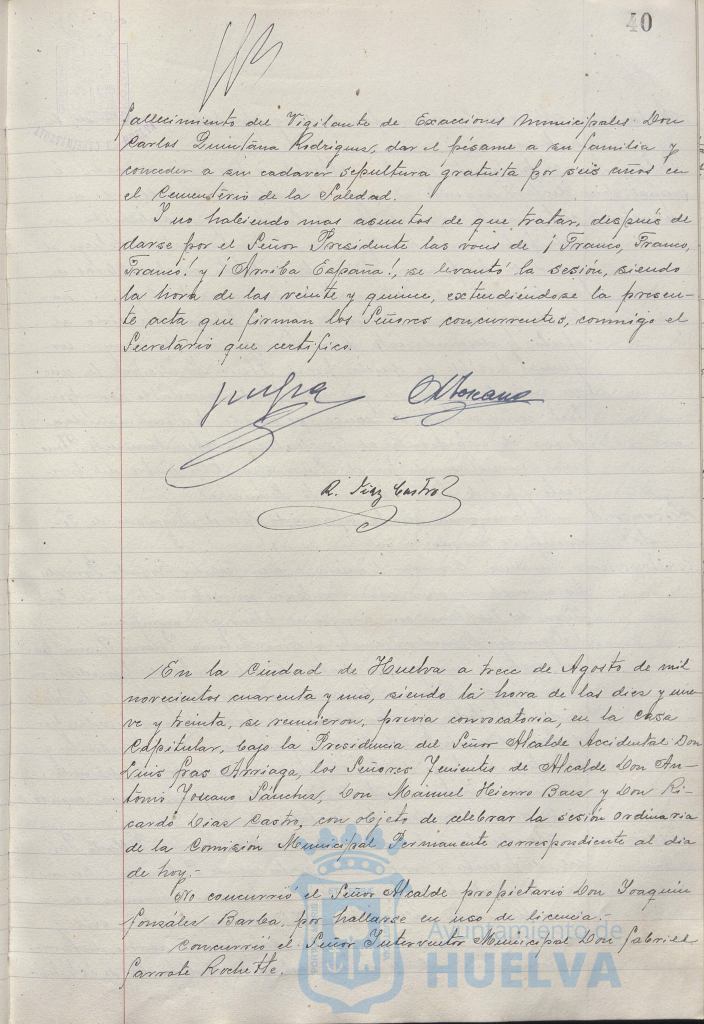 40
fallecimiento del Vigilante de Exacciones Municipales Don
Carlos Quintana Rodriguez, dar el pésame a su familia y
conceder a sin cadaver sepultura gratuita por seis años en
el Cementerio de la Soledad.
Y no habiendo mas asuntos de que tratar, después de
darse por el Señor Presidente las voces de ¡Franco, Franco,
Franco! y ¡Arriba España!, se levantó la sesión, siendo
la hora de las veinte y quince, extendiéndose la presen-
te acta que firman los Señores concurrentes, conmigo el
Secretario que certifico.
A Toscano
R. Diaz Castro
En la Ciudad de Huelva a trece de Agosto de mil
novecientos cuarenta y uno, siendo la hora de las diez y nue-
ve y treinta, se reunieron, previa convocatoria, en la Casa
Capitular, bajo la Presidencia del Señor Alcalde Accidental Don
Luis fras Arriaga, los Señores Tenientes de Alcalde Don An-
tonio Toscano Sánchez, Don Manuel Hierro Baez y Don Ri-
cardo Diaz Castro, con objeto de celebrar la sesión ordinaria
de la Comisión Municipal Permanente correspondiente al dia
de hoy.-
No concurrió el Señor Alcalde propietario Don Joaquin
González Barba, por hallarse en uso de licencia.-
Concurrió el Señor Interventor Municipal Don Gabriel
Garrote Rochette.
Ayuntamiento de
HUELVA